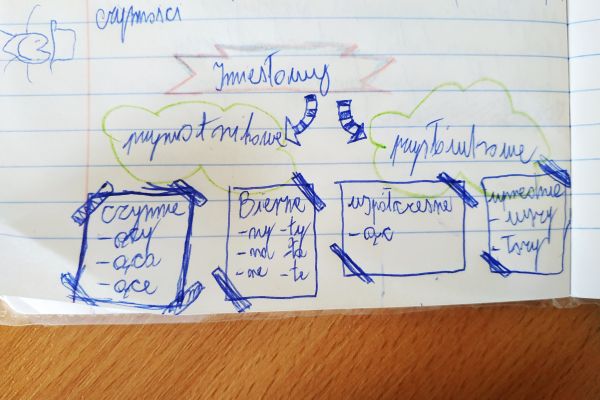 czynności
Imiesłowy
przymiotnikowe
przysłówkowe
czynne
-ący
-ąca
-ące
Bierne
-ny -ty
-na -ta
-ne -te
współczesne
-ąc
uprzednie
-wszy
-łszy